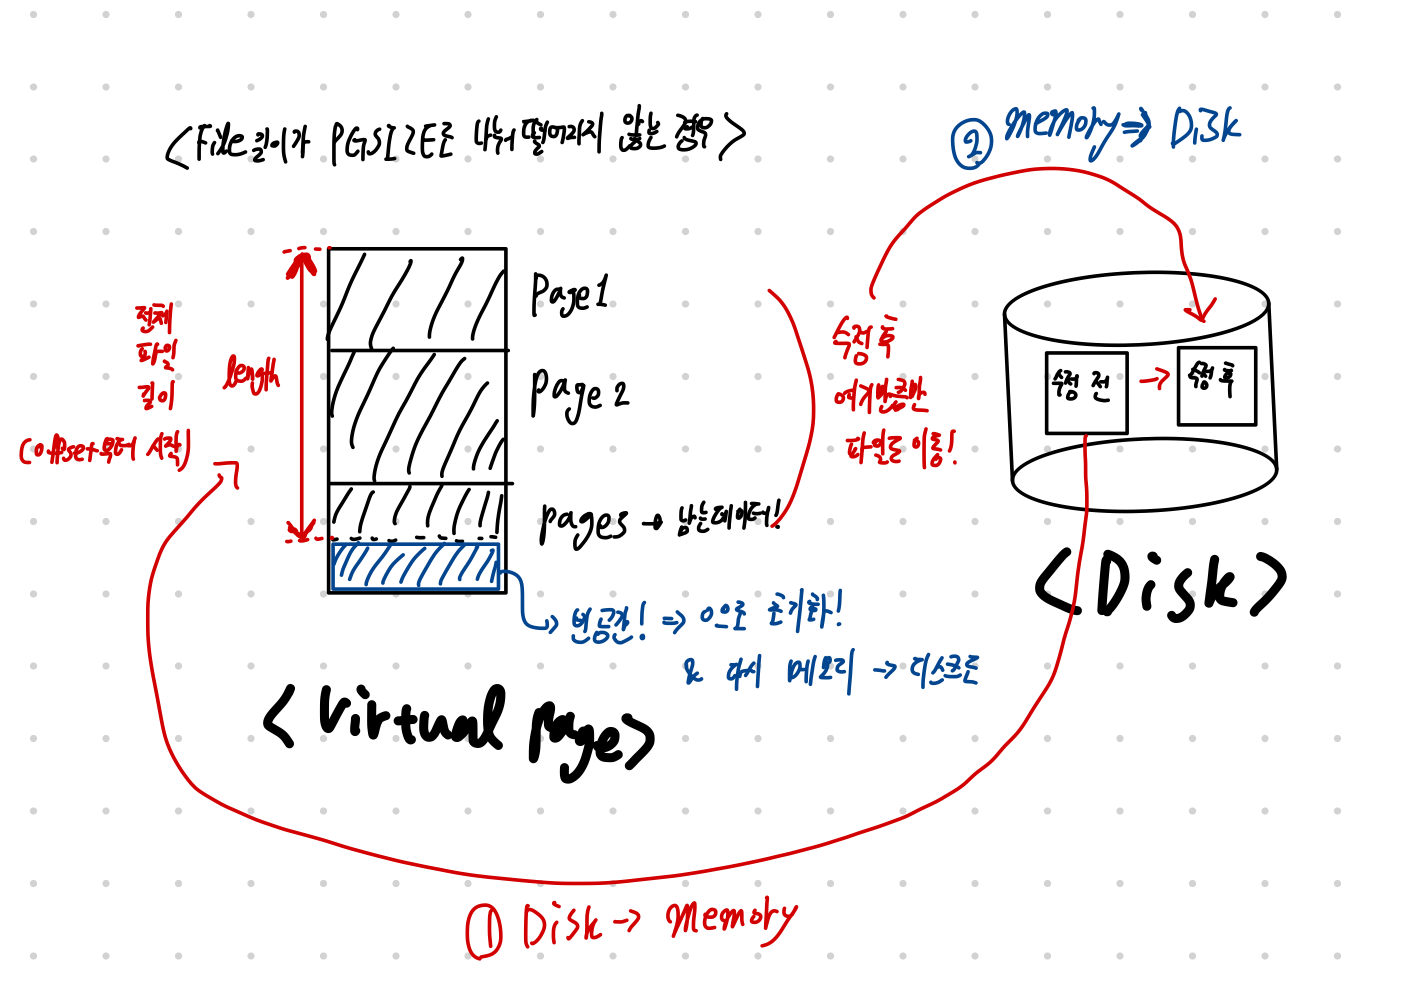 <File길이가 PGSIZE로 나눠 떨어지지 않는 경우>
② memory => Disk
Page 1
전체
파일
길이
(offset부터 시작)
length
Page 2
수정 후
여기만큼만
파일로 이동!
수정 전 → 수정 후
page3 → 남는데이터!
<Disk>
빈공간! => 0으로 초기화!
& 다시 메모리 → 디스크로
<Virtual page>
① Disk → memory